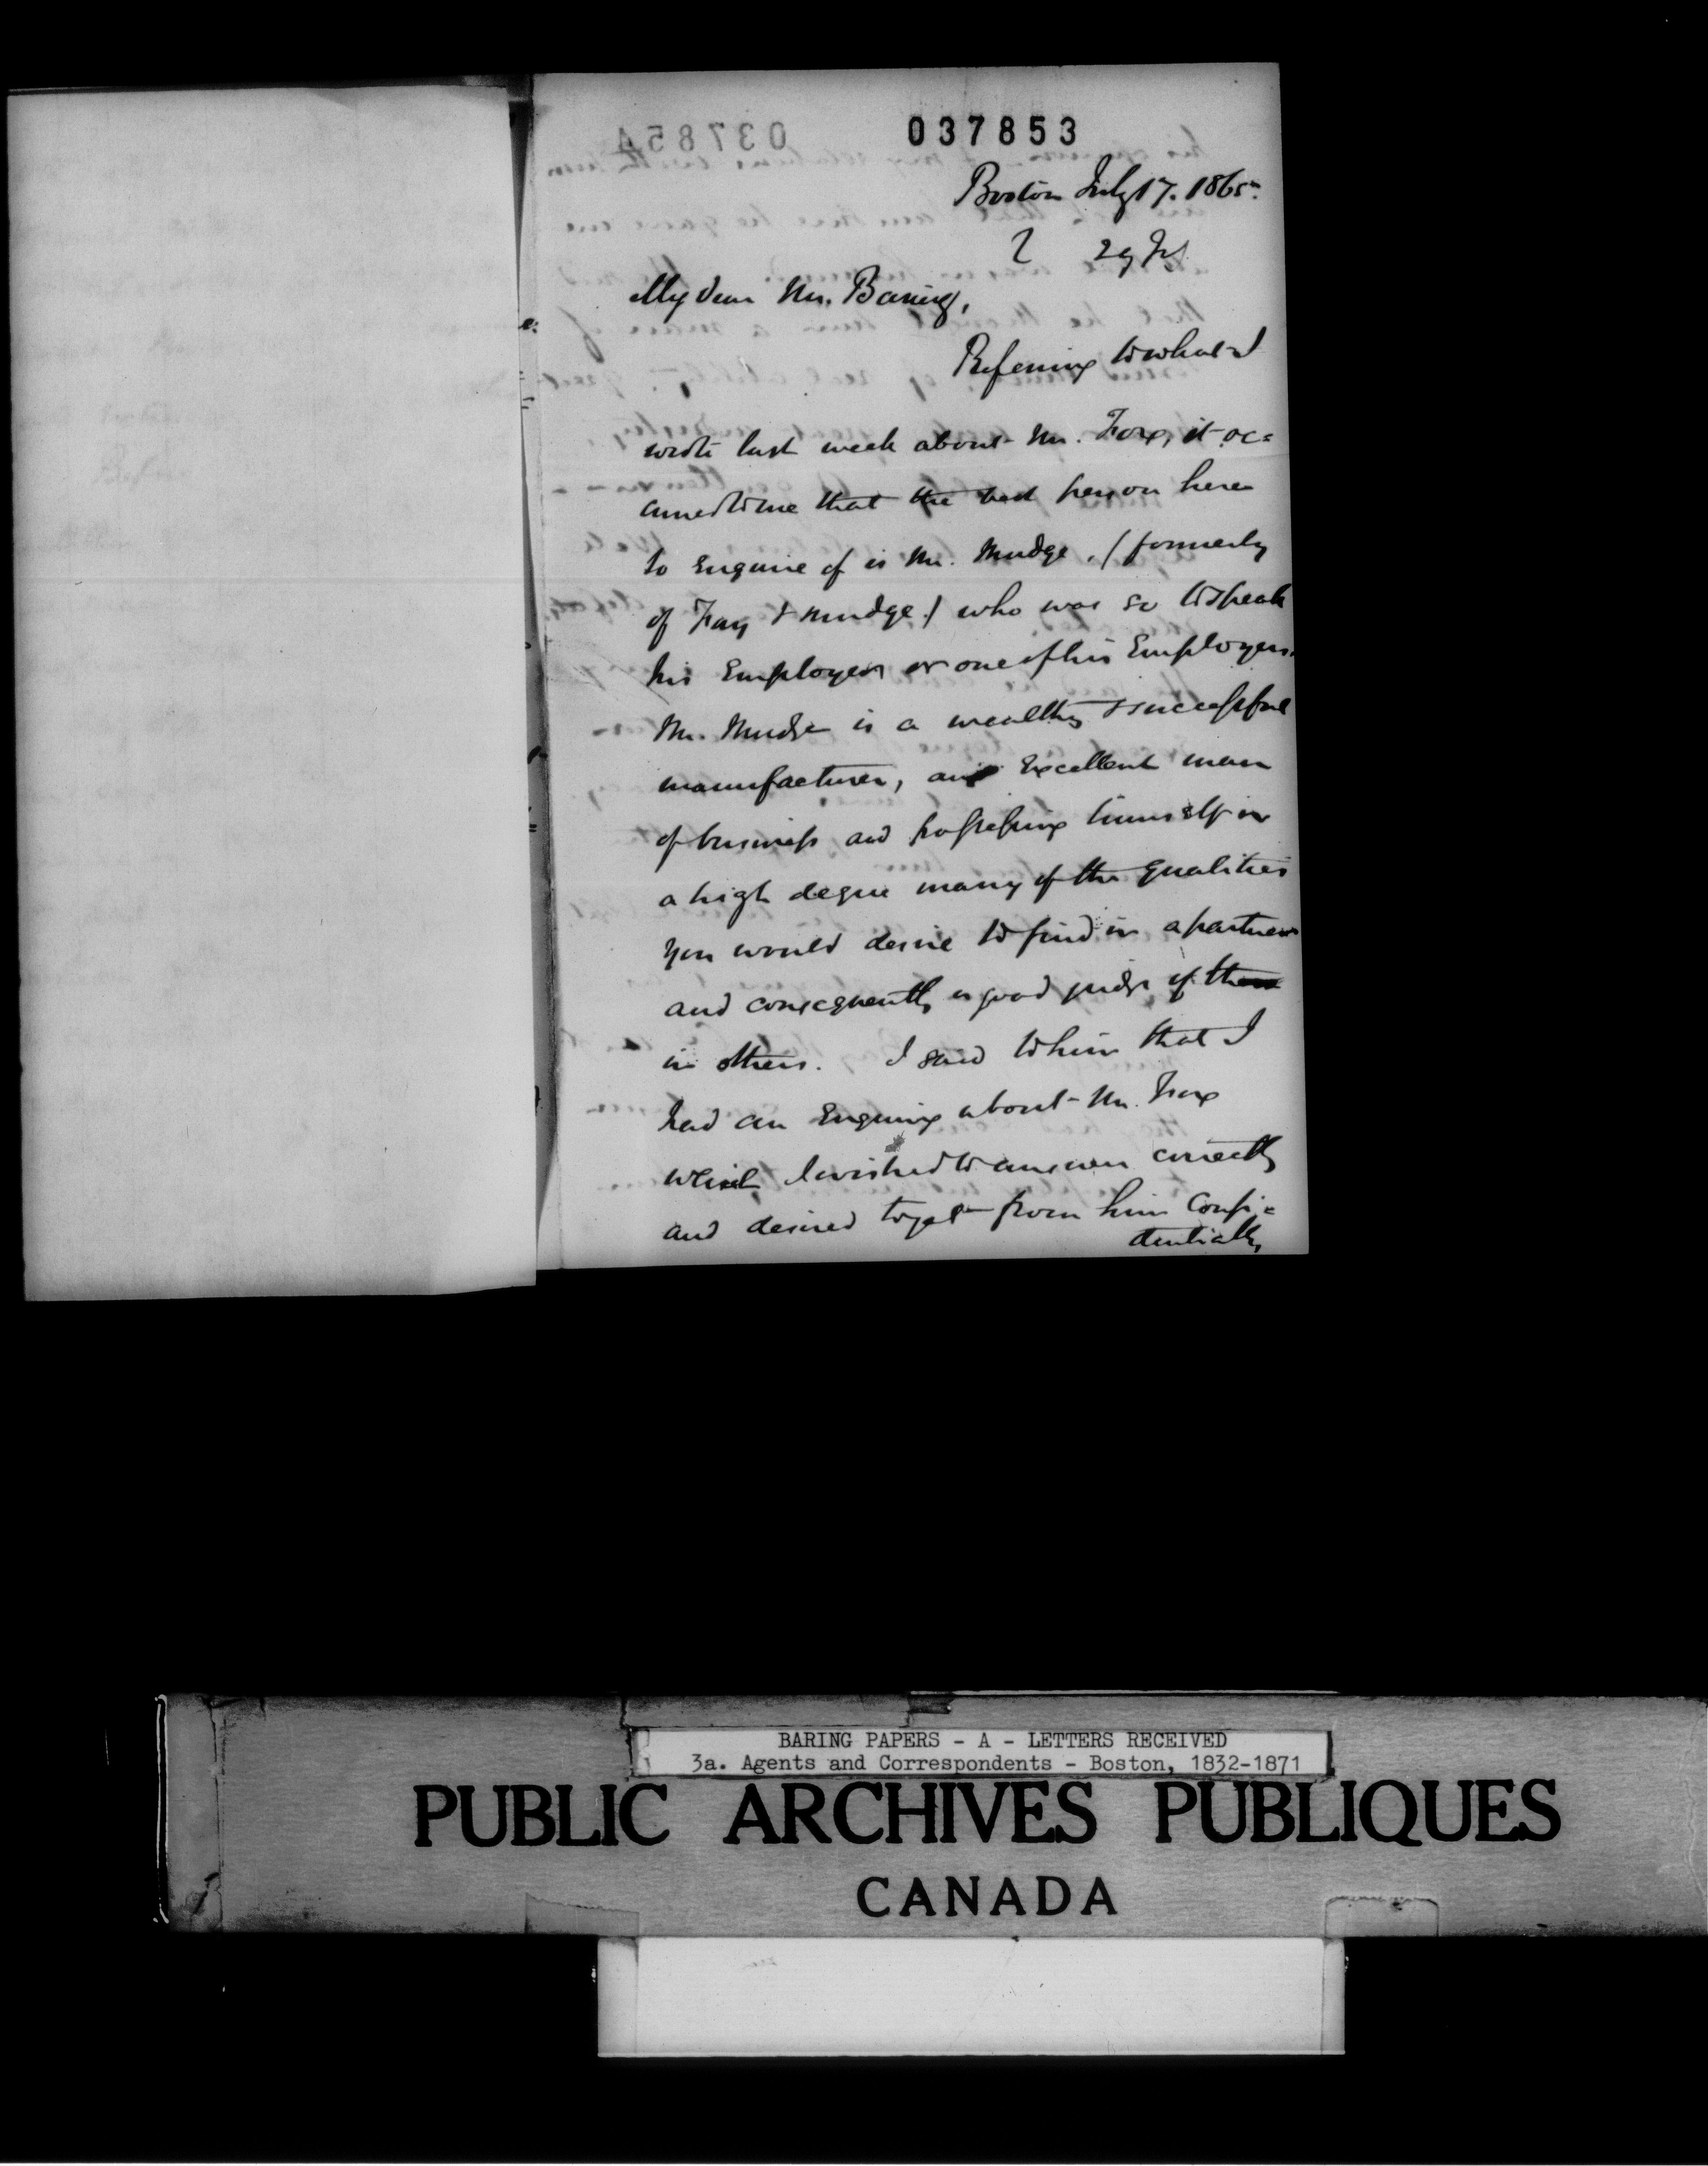 037853
Boston July 17. 1865.
2 29 July
My dear Mr. Baring,
Referring to what I
wrote last week about Mr. Fox, it oc=
curred to me that the best person here
to enquire of is Mr. Mudge, (formerly
of Fay & Mudge) who was so to speak
his Employer or one of his Employers.
Mr. Mudge is a wealthy & successful
manufacturer, an Excellent man
of business and possessing himself in
a high degree many of the qualities
you would desire to find in a partner
and consequently a good judge of them
in others. I said to him that I
had an Enquiry about Mr. Fox
which I wished to answer correctly
and desired to get from him Confi=
dentially,
BARING PAPERS - A - LETTERS RECEIVED
3a. Agents and Correspondents - Boston, 1832-1871
PUBLIC ARCHIVES PUBLIQUES
CANADA